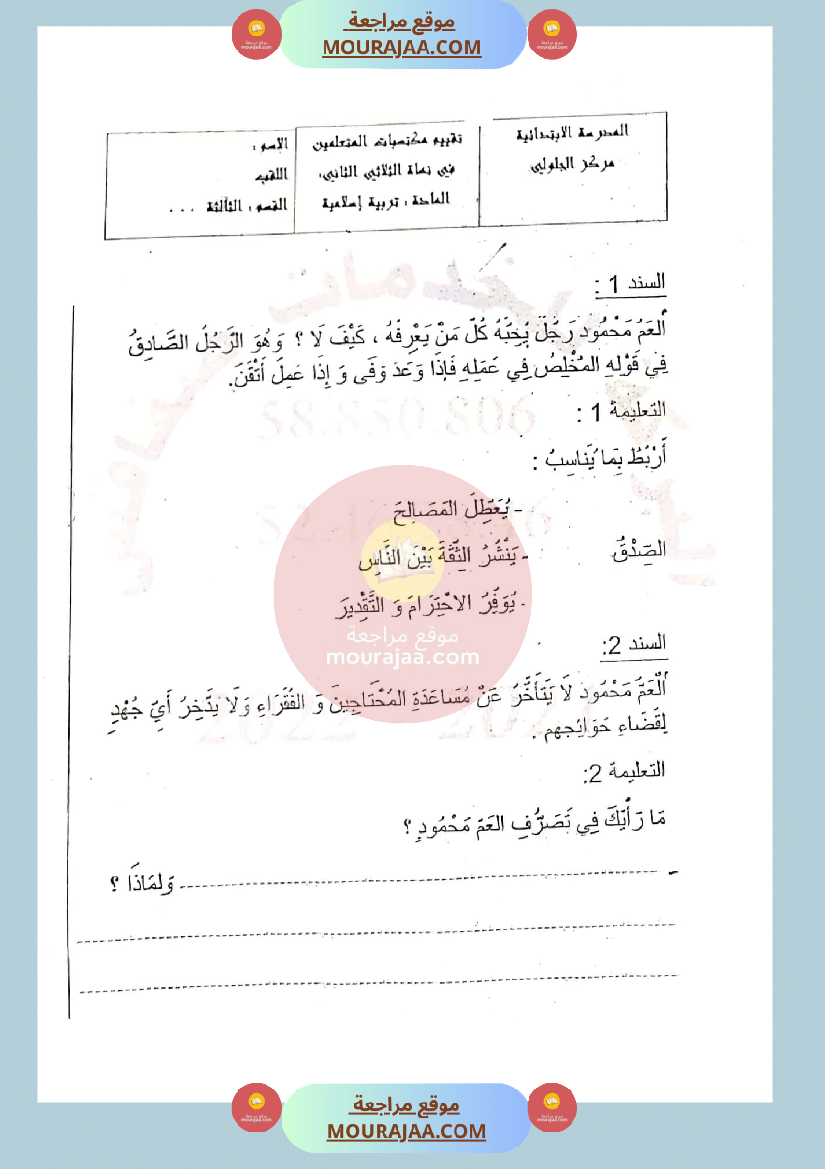 موقع مراجعة
MOURAJAA.COM
المدرسة الابتدائية
مركز الجلولي
تقييم مكتسبات المتعلمين
في نهاة الثلاثي الثاني:
المادة : تربية إسلامية
الاسم :
اللقب
القسم : الثالثة ...
السند 1 :
اَلعَمُ مَحْمُود رَجُلٌ يُحِبُّهُ كُلُّ مَنْ يَعْرِفُهُ ، كَيْفَ لَا ؟ وَهُوَ الرَّجُلُ الصَّادِقُ
فِي قَوْلِهِ المُخْلِصُ فِي عَمَلِهِ فَإِذَا وَعَدَ وَفَى وَ إِذَا عَمِلَ أَتْقَنَ.
التعليمة 1 :
أَرْبُطُ بِمَا يُنَاسِبُ :
- يُعَطِّلُ المَصَالِحَ
الصِّدْقُ
- يَنْشُرُ الثِّقَةَ بَيْنَ النَّاسِ
- يُوَفِّرُ الاحْتِرَامَ وَ التَّقْدِيرَ
موقع مراجعة
mourajaa.com
السند 2:
اَلْعَمُّ مَحْمُود لَا يَتَأَخَّرُ عَنْ مُسَاعَدَةِ المُحْتَاجِينَ وَ الفُقَرَاءِ وَلَا يَدَّخِرُ أَيَّ جُهْدٍ
لِقَضَاءِ حَوَائِجِهِم .
التعليمة 2:
مَا رَأْيُكَ فِي تَصَرُّفِ العَمِّ مَحْمُودٍ ؟
- وَلِمَاذَا ؟
موقع مراجعة
MOURAJAA.COM